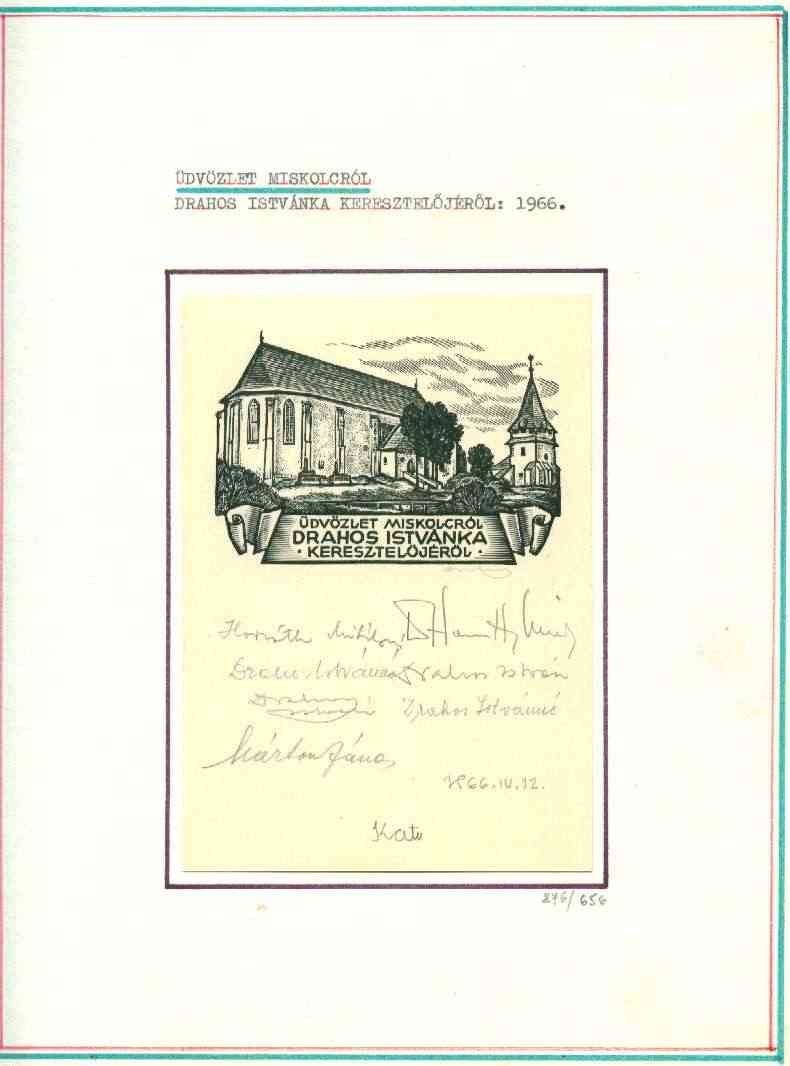 ÜDVÖZLET MISKOLCRÓL
DRAHOS ISTVÁNKA KERESZTELŐJÉRŐL: 1966.
ÜDVÖZLET MISKOLCRÓL
DRAHOS ISTVÁNKA
· KERESZTELŐJÉRŐL ·
Horváth Mihályné
Drahos Istvánné Drahos István
Drahos Istvánné
Márton János
1966.IV.12.
Kati
276/656